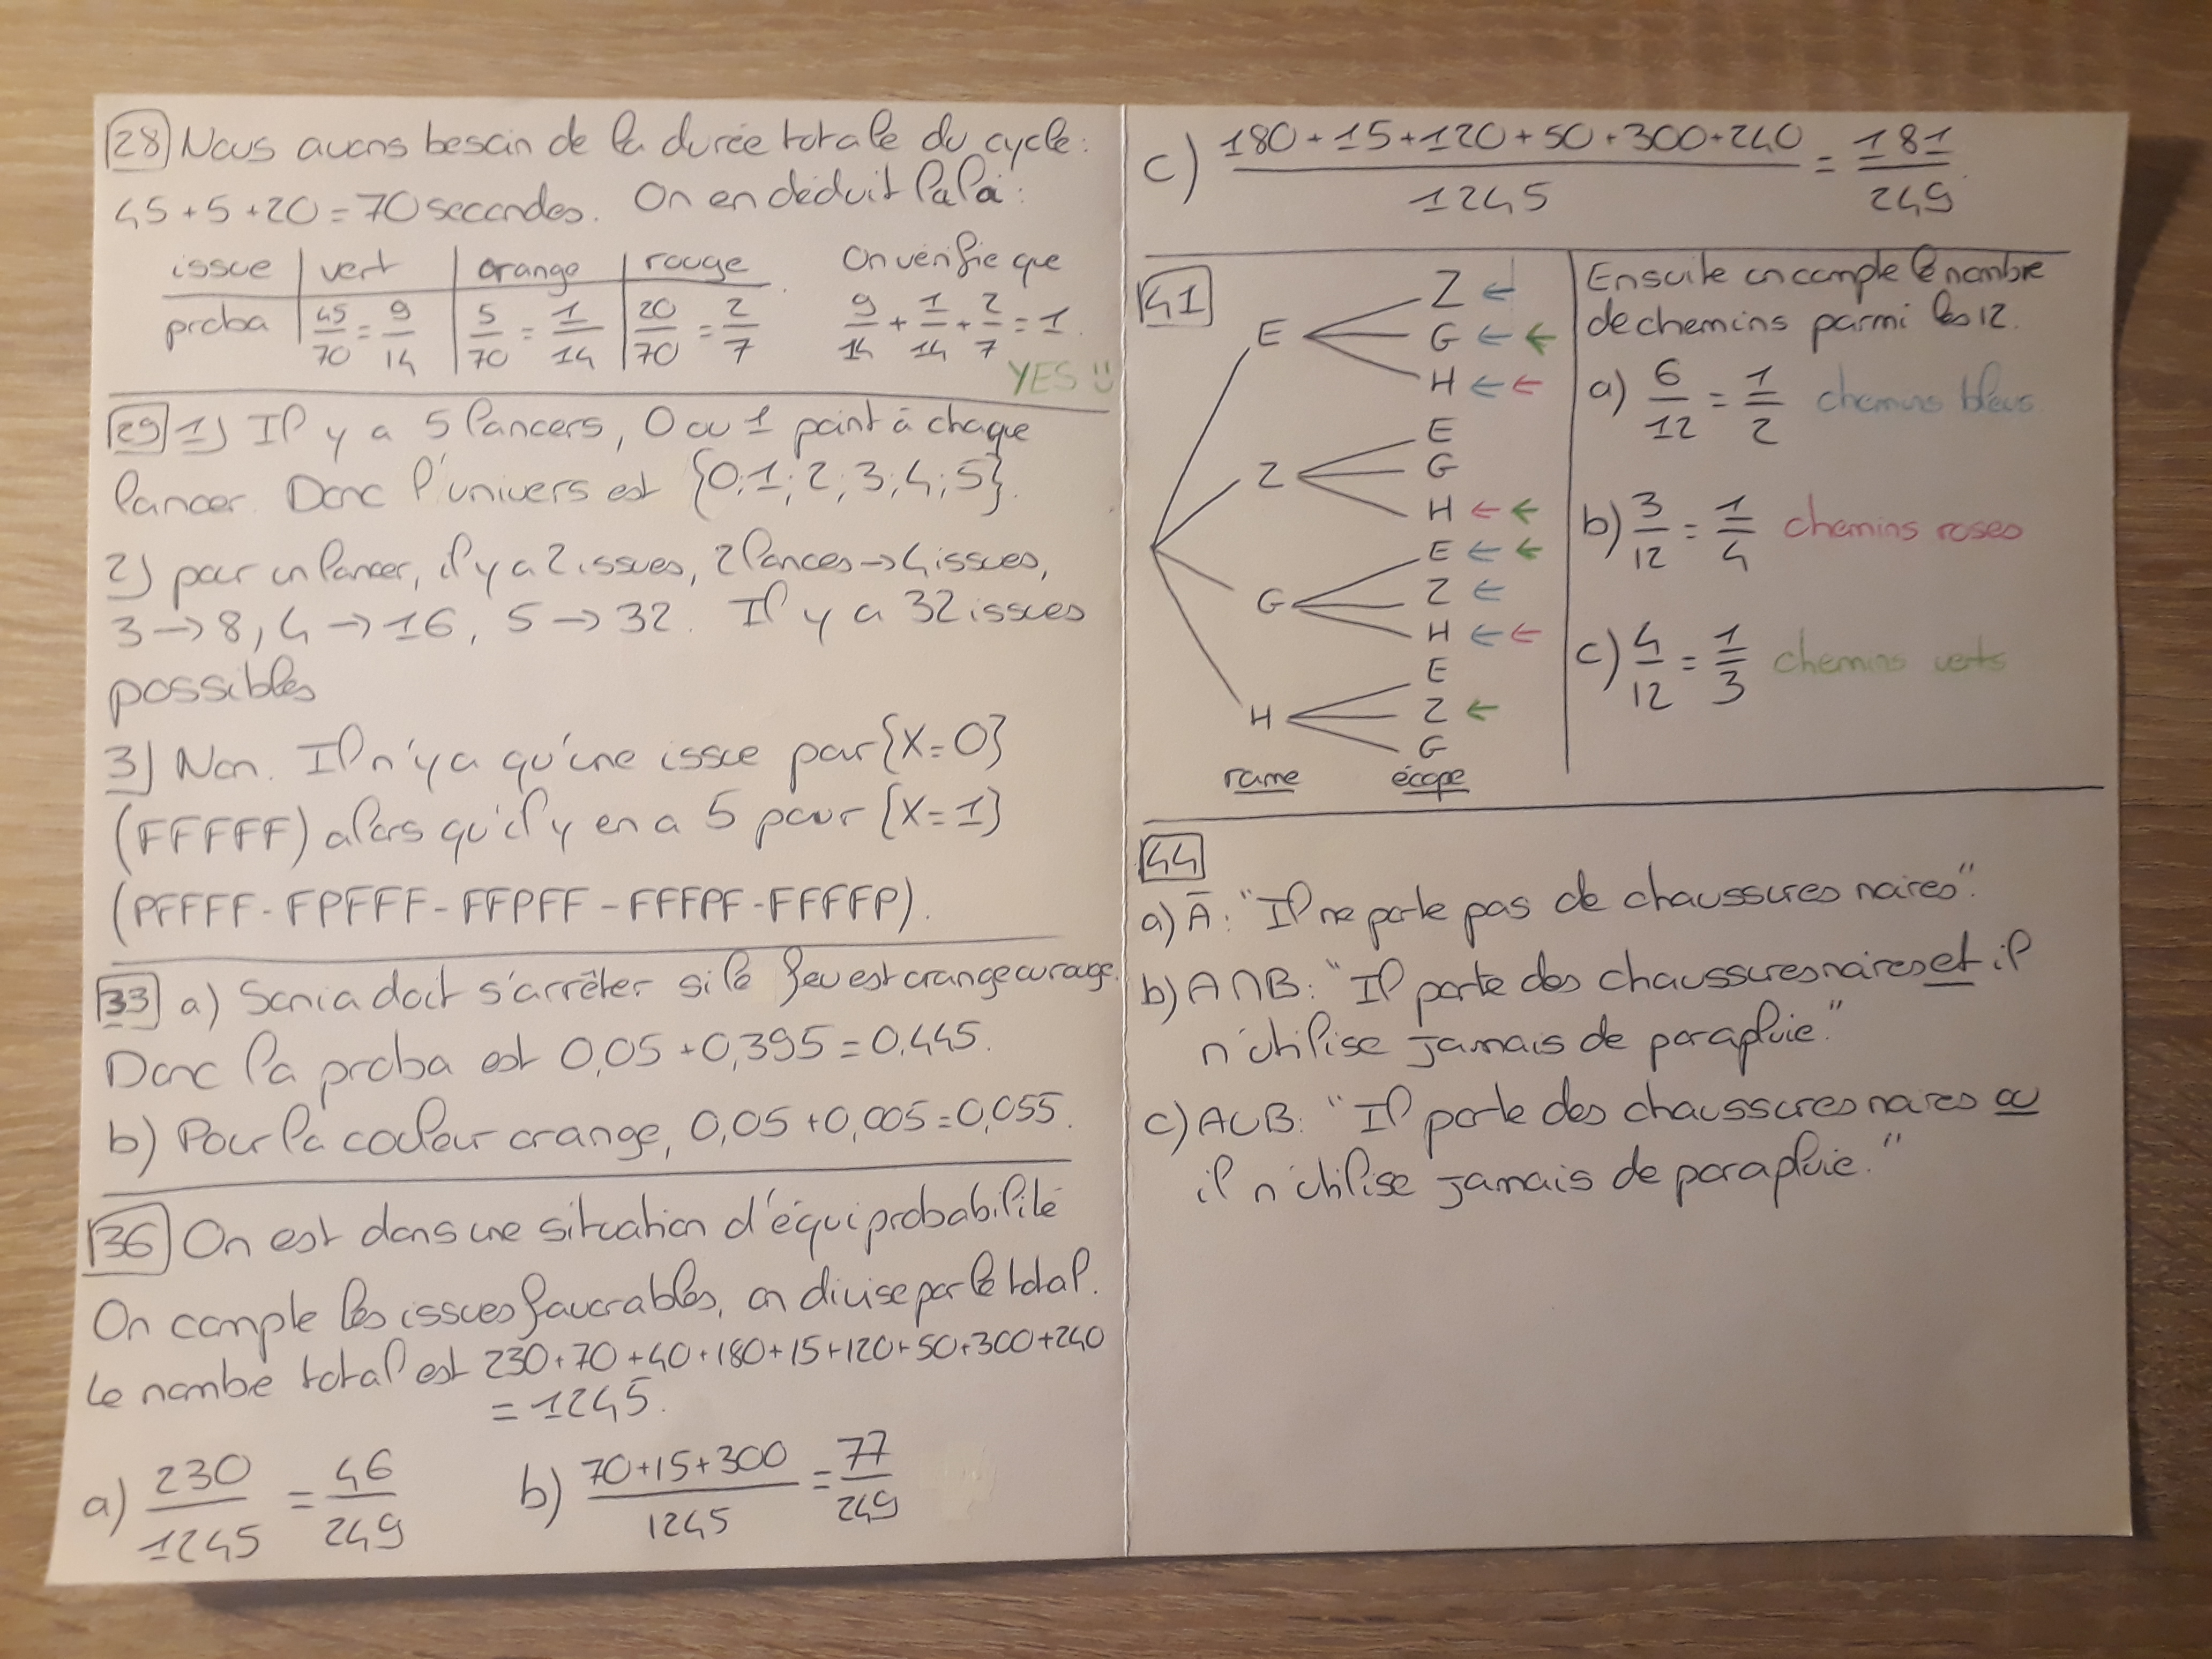 28 Nous avons besoin de la durée totale du cycle :
45 + 5 + 20 = 70 secondes. On en déduit la loi :
issue | vert | orange | rouge
proba | 45/70 = 9/14 | 5/70 = 1/14 | 20/70 = 2/7
On vérifie que
9/14 + 1/14 + 2/7 = 1
YES
29 1) Il y a 5 lancers, 0 ou 1 point à chaque
lancer. Donc l'univers est {0;1;2;3;4;5}.
2) pour un lancer, il y a 2 issues, 2 lances → 4 issues,
3 → 8, 4 → 16, 5 → 32. Il y a 32 issues
possibles
3) Non. Il n'y a qu'une issue pour {X=0}
(FFFFF) alors qu'il y en a 5 pour {X=1}
(PFFFF - FPFFF - FFPFF - FFFPF - FFFFP).
33 a) Sonia doit s'arrêter si le feu est orange ou rouge.
Donc la proba est 0,05 + 0,395 = 0,445.
b) Pour la couleur orange, 0,05 + 0,005 = 0,055.
36 On est dans une situation d'équiprobabilité
On compte les issues favorables, on divise par le total.
Le nombre total est 230 + 70 + 40 + 180 + 15 + 120 + 50 + 300 + 240
= 1245.
a) 230/1245 = 46/249 b) (70+15+300)/1245 = 77/249
c) (180 + 15 + 120 + 50 + 300 + 240)/1245 = 181/249
41
E
Z ←
G ← ←
H ← ←
Z
E
G
H ← ←
G
E ← ←
Z ←
H ← ←
H
E
Z ←
G
rame écope
Ensuite on compte le nombre
de chemins parmi les 12.
a) 6/12 = 1/2 chemins bleus
b) 3/12 = 1/4 chemins roses
c) 4/12 = 1/3 chemins verts
44
a) Ā : "Il ne porte pas de chaussures noires".
b) A∩B : "Il porte des chaussures noires et il
n'utilise jamais de parapluie."
c) A∪B : "Il porte des chaussures noires ou
il n'utilise jamais de parapluie."